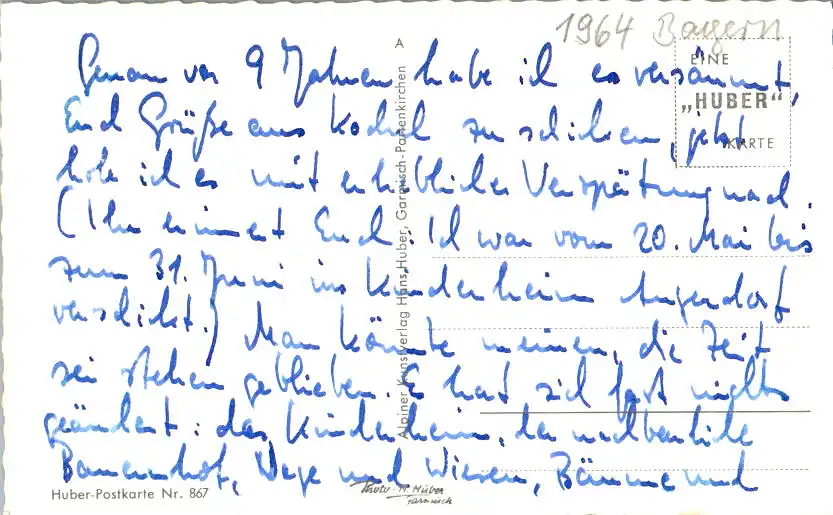 1964 Bayern
A
EINE
„HUBER“
KARTE
Genau vor 9 Jahren habe ich es versäumt,
Euch Grüße aus Kochel zu schicken, jetzt
hole ich es mit erheblicher Verspätung nach.
(Ihr erinnert Euch: Ich war vom 20. Mai bis
zum 31. Juni ins Kinderheim Jugenddorf
verschickt.) Man könnte meinen, die Zeit
sei stehen geblieben. Es hat sich fast nichts
geändert: das Kinderheim, der nachbarliche
Bauernhof, Wege und Wiesen, Bäume und
Alpiner Kunstverlag Hans Huber, Garmisch-Partenkirchen
Huber-Postkarte Nr. 867
Photo-H. Huber
Garmisch